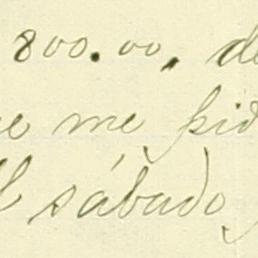 800.00, de
me pid
sábado,